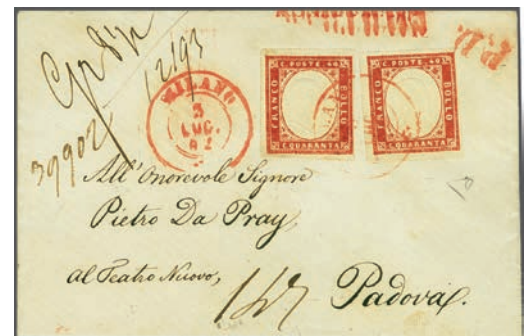 P.D.
12193
39902
MILANO
3
LUG.
62
C. POSTE 40
FRANCO
BOLLO
C. QUARANTA
C. POSTE 40
FRANCO
BOLLO
C. QUARANTA
All' Onorevole Signore
Pietro Da Pray,
al Teatro Nuovo,
147
Padova.